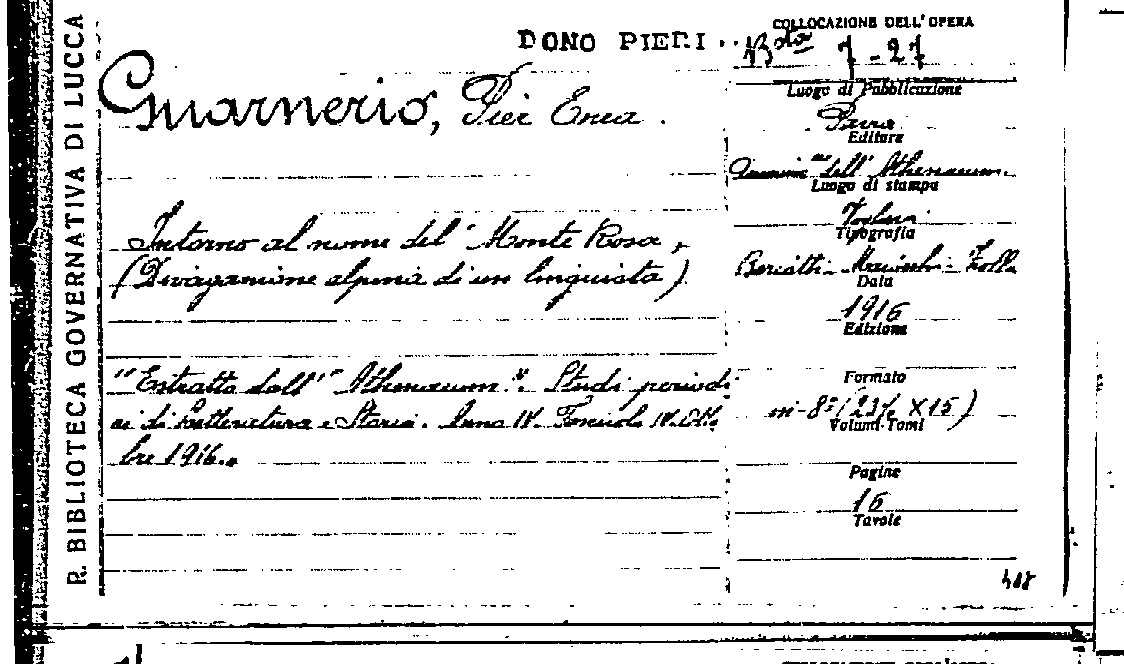 R. BIBLIOTECA GOVERNATIVA DI LUCCA
DONO PIERI..
COLLOCAZIONE DELL'OPERA
B.ta 7-27
Guarnerio, Pier Enea.
Luogo di Pubblicazione
Pavia
Editore
dell'Athenaeum.
Luogo di stampa
Intorno al nome del "Monte Rosa"
Tipografia
(Divagazione alpina di un linguista)
Data
1916
Edizione
"Estratto dall'"Athenaeum". Studi periodi
Formato
ci di Letteratura e Storia. Anno IV. Fascicolo IV. Otto
in-8° (23½ X15)
Volumi-Tomi
bre 1916.
Pagine
16
Tavole